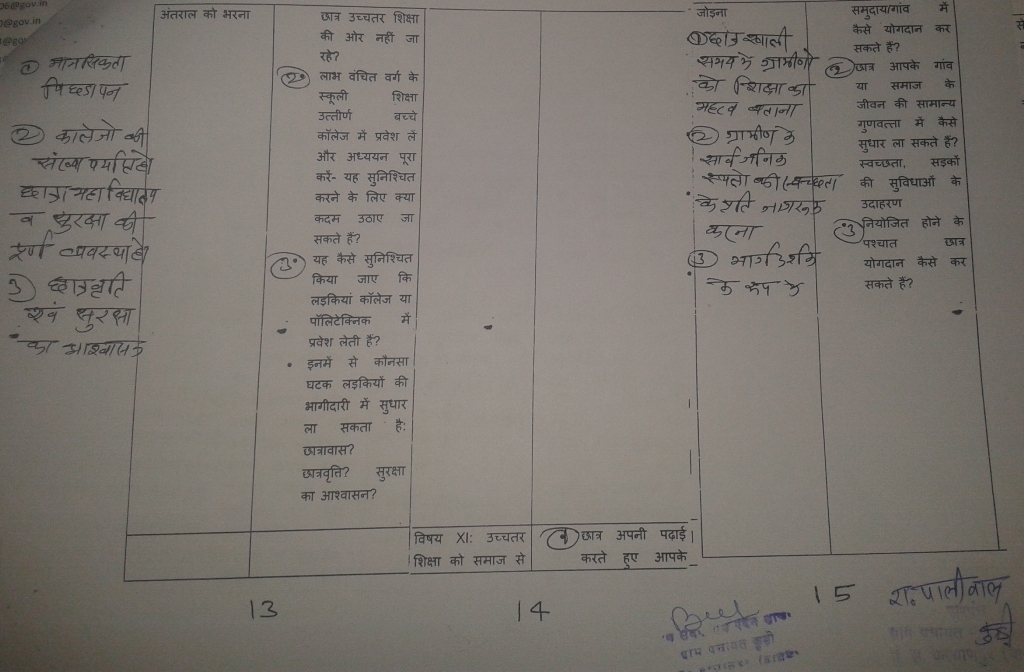 06@gov.in
@gov.in
① मानसिकता
पिछडापन
② कालेजो की
संख्या पर्याप्त हो
छात्रा महा विद्यालय
व सुरक्षा की
पूर्ण व्यवस्था हो
3) छात्रवृति
एवं सुरक्षा
का आश्वासन
अंतराल को भरना
छात्र उच्चतर शिक्षा
की ओर नहीं जा
रहे?
2. लाभ वंचित वर्ग के
स्कूली शिक्षा
उत्तीर्ण बच्चे
कॉलेज में प्रवेश लें
और अध्ययन पूरा
करें- यह सुनिश्चित
करने के लिए क्या
कदम उठाए जा
सकते हैं?
3. यह कैसे सुनिश्चित
किया जाए कि
लड़कियां कॉलेज या
पॉलिटेक्निक में
प्रवेश लेती हैं?
• इनमें से कौनसा
घटक लड़कियों की
भागीदारी में सुधार
ला सकता है:
छात्रावास?
छात्रवृत्ति? सुरक्षा
का आश्वासन?
विषय XI: उच्चतर
शिक्षा को समाज से
1 छात्र अपनी पढाई
करते हुए आपके
जोड़ना
① छात्र खाली
समय मे ग्रामीणो
को शिक्षा का
महत्व बताना
② ग्रामीण के
सार्वजनिक
स्थलो की स्वच्छता
के प्रति जागरूक
करना
③ मार्गदर्शक
के रूप मे
समुदाय/गांव में
कैसे योगदान कर
सकते हैं?
2 छात्र आपके गांव
या समाज के
जीवन की सामान्य
गुणवत्ता में कैसे
सुधार ला सकते हैं?
स्वच्छता, सड़कों
की सुविधाओं के
उदाहरण
3 नियोजित होने के
पश्चात छात्र
योगदान कैसे कर
सकते हैं?
13
14
15
रा. पालीवाल
ग्राम पंचायत